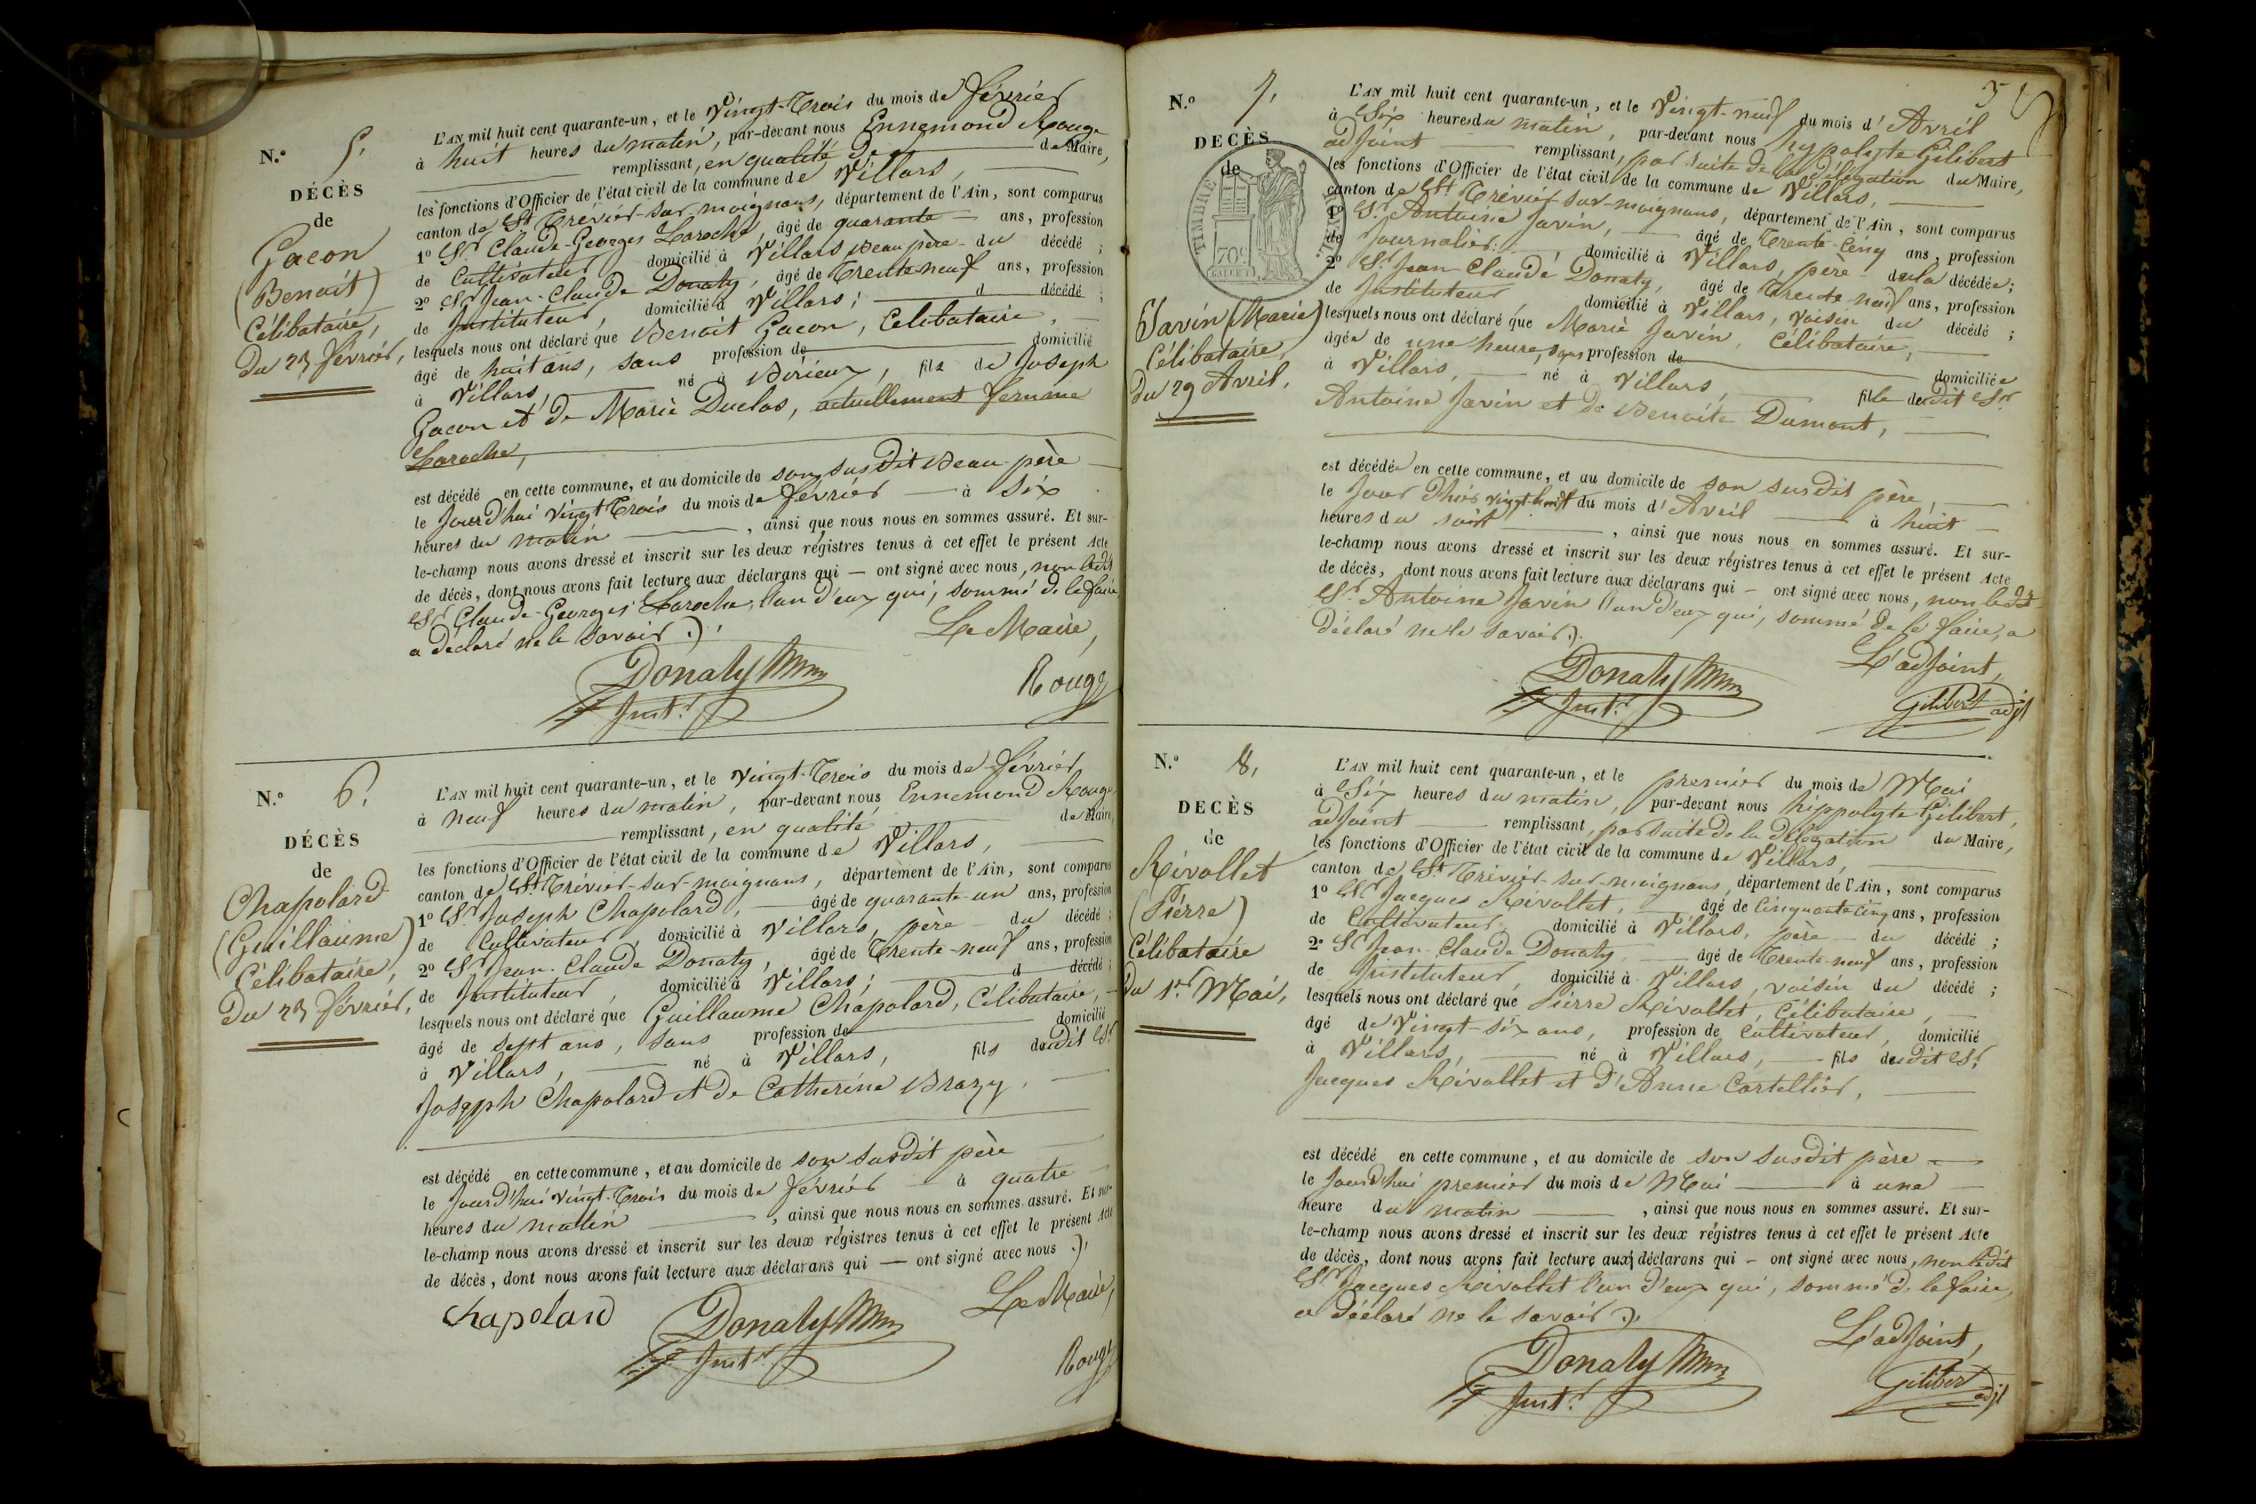 N.° 5.
DÉCÈS
de
Gacon
(Benoit)
Célibataire,
Du 23 février,
L'AN mil huit cent quarante-un, et le Vingt-Trois du mois de février
à huit heures du matin, par-devant nous Ennemond Rouge
remplissant, en qualité de de Maire,
les fonctions d'Officier de l'état civil de la commune de Villars,
canton de St Trévier-sur-moignans, département de l'Ain, sont comparus
1° Sr Claude-Georges Laroche, âgé de quarante ans, profession
de Cultivateur domicilié à Villars Beau père du décédé ;
2° Sr Jean-Claude Donaty, âgé de Trente-neuf ans, profession
de Instituteur, domicilié à Villars ; d décédé ;
lesquels nous ont déclaré que Benoit Gacon, Célibataire,
âgé de huit ans, sans profession de domicilié
à Villars, né à Birieux, fils de Joseph
Gacon et de Marie Duclos, actuellement femme
Laroche,
est décédé en cette commune, et au domicile de son susdit Beau-père
le Jourd'hui vingt-Trois du mois de février à Six
heures du matin, ainsi que nous nous en sommes assuré. Et sur-
le-champ nous avons dressé et inscrit sur les deux régistres tenus à cet effet le présent Acte
de décès, dont nous avons fait lecture aux déclarans qui — ont signé avec nous, non ledit
Sr Claude-Georges Laroche, l'un d'eux qui, sommé de le faire
a déclaré ne le savoir ).
Le Maire,
Donaty
Instr
Rouge
N.° 6.
DÉCÈS
de
Chapolard
(Guillaume)
Célibataire,
Du 23 février,
L'AN mil huit cent quarante-un, et le vingt-Trois du mois de février
à neuf heures du matin, par-devant nous Ennemond Rouge
remplissant, en qualité de Maire,
les fonctions d'Officier de l'état civil de la commune de Villars,
canton de St Trévier-sur-moignans, département de l'Ain, sont comparus
1° Sr Joseph Chapolard, âgé de quarante-un ans, profession
de Cultivateur, domicilié à Villars, père du décédé ;
2° Sr Jean-Claude Donaty, âgé de Trente-neuf ans, profession
de Instituteur, domicilié à Villars ; d décédé ;
lesquels nous ont déclaré que Guillaume Chapolard, Célibataire,
âgé de sept ans, sans profession de domicilié
à Villars, né à Villars, fils dudit Sr
Joseph Chapolard et de Catherine Brazy,
est décédé en cette commune, et au domicile de son susdit père
le Jourd'hui vingt-Trois du mois de février à quatre
heures du matin, ainsi que nous nous en sommes assuré. Et sur-
le-champ nous avons dressé et inscrit sur les deux régistres tenus à cet effet le présent Acte
de décès, dont nous avons fait lecture aux déclarans qui — ont signé avec nous ).
Le Maire,
Chapolard
Donaty
Instr
Rouge
N.° 7.
DECÈS
de
TIMBRE ROYAL
70c
Javin (Marie)
Célibataire,
Du 29 Avril,
L'AN mil huit cent quarante-un, et le Vingt-neuf du mois d'Avril
à Six heures du matin, par-devant nous hypolyte Gilibert
adjoint remplissant, par suite de la délégation du Maire,
les fonctions d'Officier de l'état civil de la commune de Villars,
canton de St Trévier-sur-moignans, département de l'Ain, sont comparus
1° Sr Antoine Javin, âgé de Trente-Cinq ans, profession
de Journalier, domicilié à Villars, père de la décédée ;
2° Sr Jean-Claude Donaty, âgé de Trente-neuf ans, profession
de Instituteur, domicilié à Villars, voisin du décédé ;
lesquels nous ont déclaré que Marie Javin, Célibataire,
âgée de une heure, sans profession de domiciliée
à Villars, né à Villars, fille dudit Sr
Antoine Javin et de Benoite Dumont,
est décédée en cette commune, et au domicile de son susdit père,
le Jour d'hier vingt-huit du mois d'Avril à huit
heures du soir, ainsi que nous nous en sommes assuré. Et sur-
le-champ nous avons dressé et inscrit sur les deux régistres tenus à cet effet le présent Acte
de décès, dont nous avons fait lecture aux déclarans qui — ont signé avec nous, non ledit
Sr Antoine Javin l'un d'eux qui, sommé de le faire, a
déclaré ne le savoir ).
L'adjoint,
Donaty
Instr
Gilibert adjt
N.° 8.
DECÈS
de
Rivollet
(Pierre)
Célibataire
Du 1er Mai,
L'AN mil huit cent quarante-un, et le premier du mois de Mai
à Six heures du matin, par-devant nous hippolyte Gilibert,
adjoint remplissant, par suite de la délégation du Maire,
les fonctions d'Officier de l'état civil de la commune de Villars,
canton de St Trévier-sur-moignans, département de l'Ain, sont comparus
1° Sr Jacques Rivollet, âgé de Cinquante cinq ans, profession
de Cultivateur, domicilié à Villars, père du décédé ;
2° Sr Jean-Claude Donaty, âgé de Trente-neuf ans, profession
de Instituteur, domicilié à Villars, voisin du décédé ;
lesquels nous ont déclaré que Pierre Rivollet, Célibataire,
âgé de Vingt-six ans, profession de Cultivateur, domicilié
à Villars, né à Villars, fils dudit Sr
Jacques Rivollet et d'Anne Cartellier,
est décédé en cette commune, et au domicile de son susdit père
le Jourd'hui premier du mois de Mai à une
heure du matin, ainsi que nous nous en sommes assuré. Et sur-
le-champ nous avons dressé et inscrit sur les deux régistres tenus à cet effet le présent Acte
de décès, dont nous avons fait lecture aux déclarans qui — ont signé avec nous, non ledit
Sr Jacques Rivollet l'un d'eux qui, sommé de le faire,
a déclaré ne le savoir ).
L'adjoint,
Donaty
Instr
Gilibert adjt